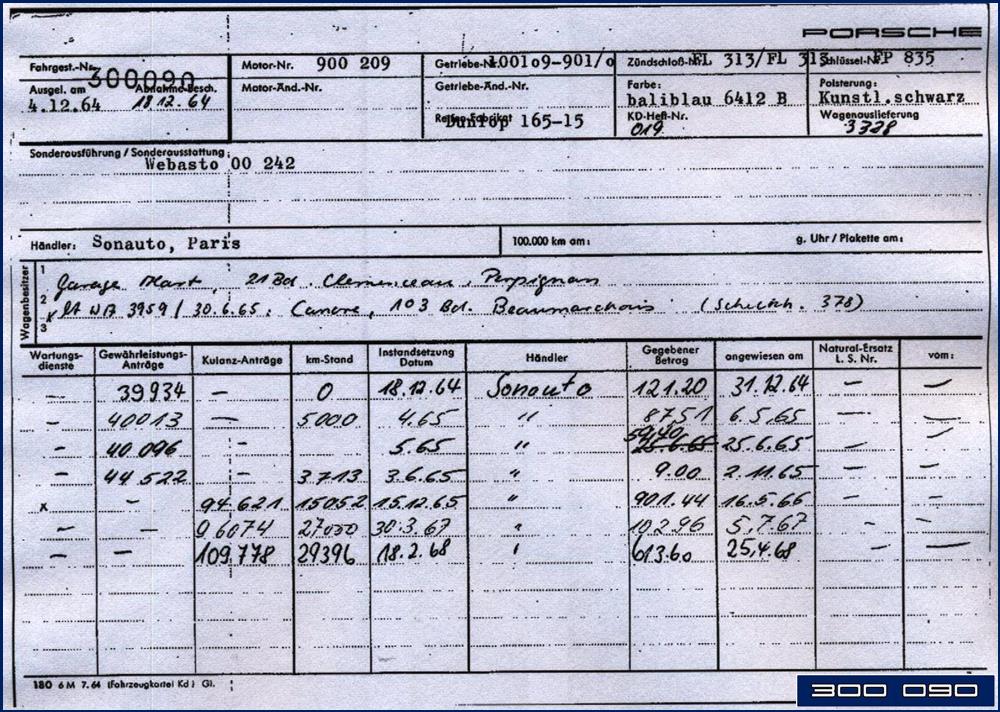 PORSCHE
Fahrgest.-Nr. 300090 Motor-Nr. 900 209 Getriebe-Nr. 100109-901/0 Zündschloß-Nr. FL 313/FL 313 Schlüssel-Nr. FP 835
Ausgel. am 4.12.64 Abnahme-Besch. 18.12.64 Motor-Änd.-Nr. Getriebe-Änd.-Nr. Farbe: baliblau 6412 B Polsterung: Kunstl.schwarz
Reifen-Fabrikat Dunlop 165-15 KD-Heft-Nr. 019 Wagenauslieferung 3328
Sonderausführung / Sonderausstattung: Webasto 00 242
Händler: Sonauto, Paris 100.000 km am: g. Uhr / Plakette am:
Wagenbesitzer
1 Garage Mart, 21 Bd. Clemenceau, Perpignan
2 lt WA 3959 / 30.6.65: Canore, 103 Bd. Beaumarchais (Schultch. 378)
3
Wartungs-dienste Gewährleistungs-Anträge Kulanz-Anträge km-Stand Instandsetzung Datum Händler Gegebener Betrag angewiesen am Natural-Ersatz L. S. Nr. vom:
— 39934 — 0 18.12.64 Sonauto 121.20 31.12.64 — —
— 40013 — 5000 4.65 " 87.51 6.5.65 — —
— 40096 — 5.65 " 59,40 25.6.65 25.6.65 — —
— 44522 3713 3.6.65 " 9.00 2.11.65 — —
x - 94621 15052 15.12.65 " 901.44 16.5.66 — —
— — 96074 27000 30.3.67 " 102.96 5.7.67 - -
— — 109.778 29396 18.2.68 " 613.60 25.4.68 — —
180 6 M 7.64 (Fahrzeugkartei Kd) Gl.
300 090